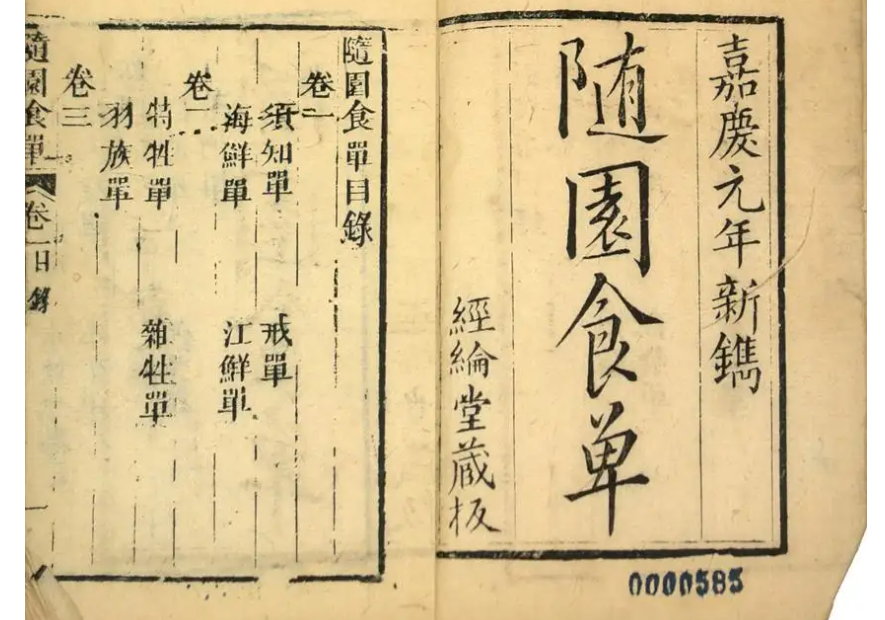 嘉慶元年新鐫
随園食单
經綸堂蔵板
0000585
隨園食單目錄
卷一
須知單 戒單
海鮮單 江鮮單
卷二
特牲單 雜牲單
羽族單
卷三
隨園食單 卷一 目錄